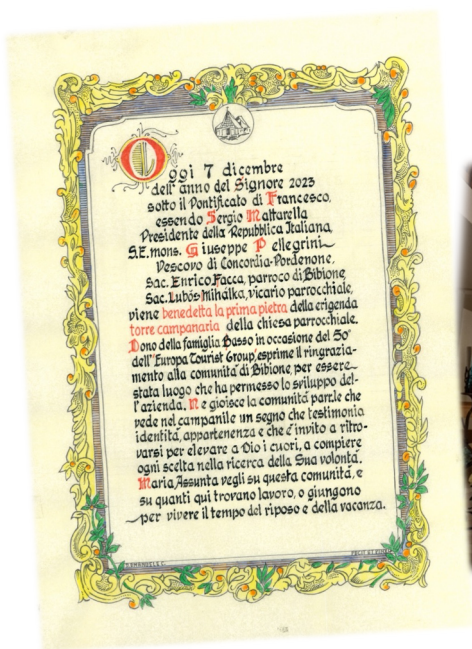 Oggi 7 dicembre
dell' anno del Signore 2023
sotto il Pontificato di Francesco,
essendo Sergio Mattarella
Presidente della Repubblica Italiana,
S.E. mons. Giuseppe Pellegrini
Vescovo di Concordia-Pordenone,
Sac. Enrico Facca, parroco di Bibione,
Sac. Lubós Mihálka, vicario parrocchiale,
viene benedetta la prima pietra della erigenda
torre campanaria della chiesa parrocchiale.
Dono della famiglia Basso in occasione del 50°
dell' Europa Tourist Group, esprime il ringrazia-
mento alla comunità di Bibione, per essere
stata luogo che ha permesso lo sviluppo del-
l'azienda. Ne gioisce la comunità parr.le che
vede nel campanile un segno che testimonia
identità, appartenenza e che è invito a ritro-
varsi per elevare a Dio i cuori, a compiere
ogni scelta nella ricerca della Sua volontà.
Maria Assunta vegli su questa comunità, e
su quanti qui trovano lavoro, o giungono
per vivere il tempo del riposo e della vacanza.